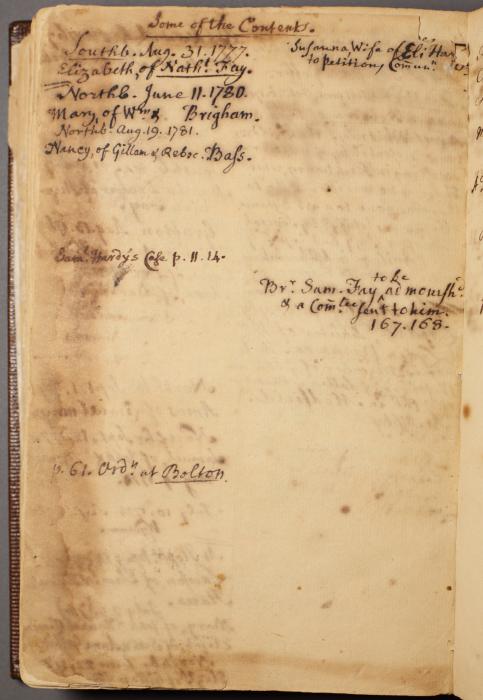 Some of the Contents.
Southb. Aug. 31. 1777.
Elizabeth, of Nathl. Fay.
Northb. June 11. 1780.
Mary, of Wm & Brigham.
Northb. Aug. 19. 1781.
Nancy, of Gillam & Rebec. Bass.
Saml. Hardys Case p. 11. 14.
p. 61. Ordn at Bolton.
Susanna, Wife of Eli
to Petitions Commun
to be
Br. Sam. Fay admonishd.
& a Comtee sent to him.
167. 168.